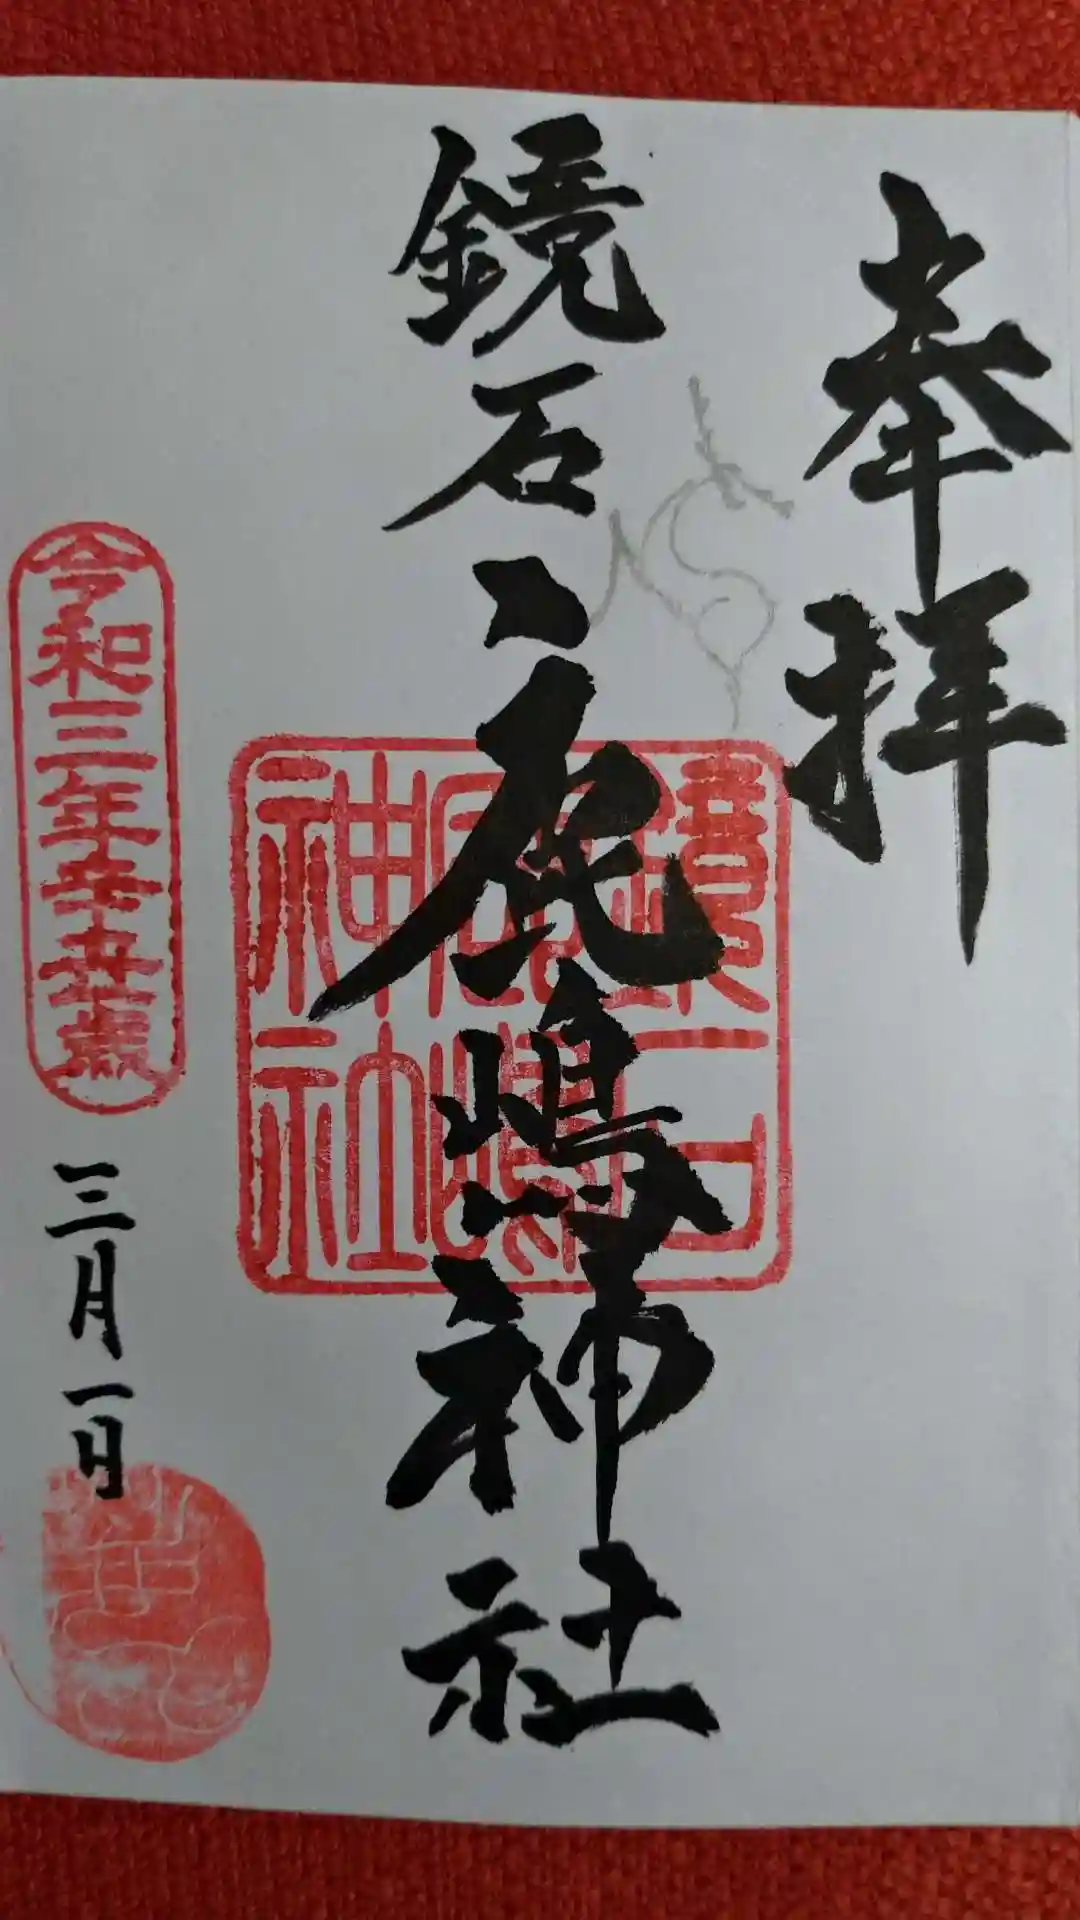 奉拝
鏡石鹿嶋神社
鏡石
鹿嶋
神社
令和三年辛丑歳
三月一日